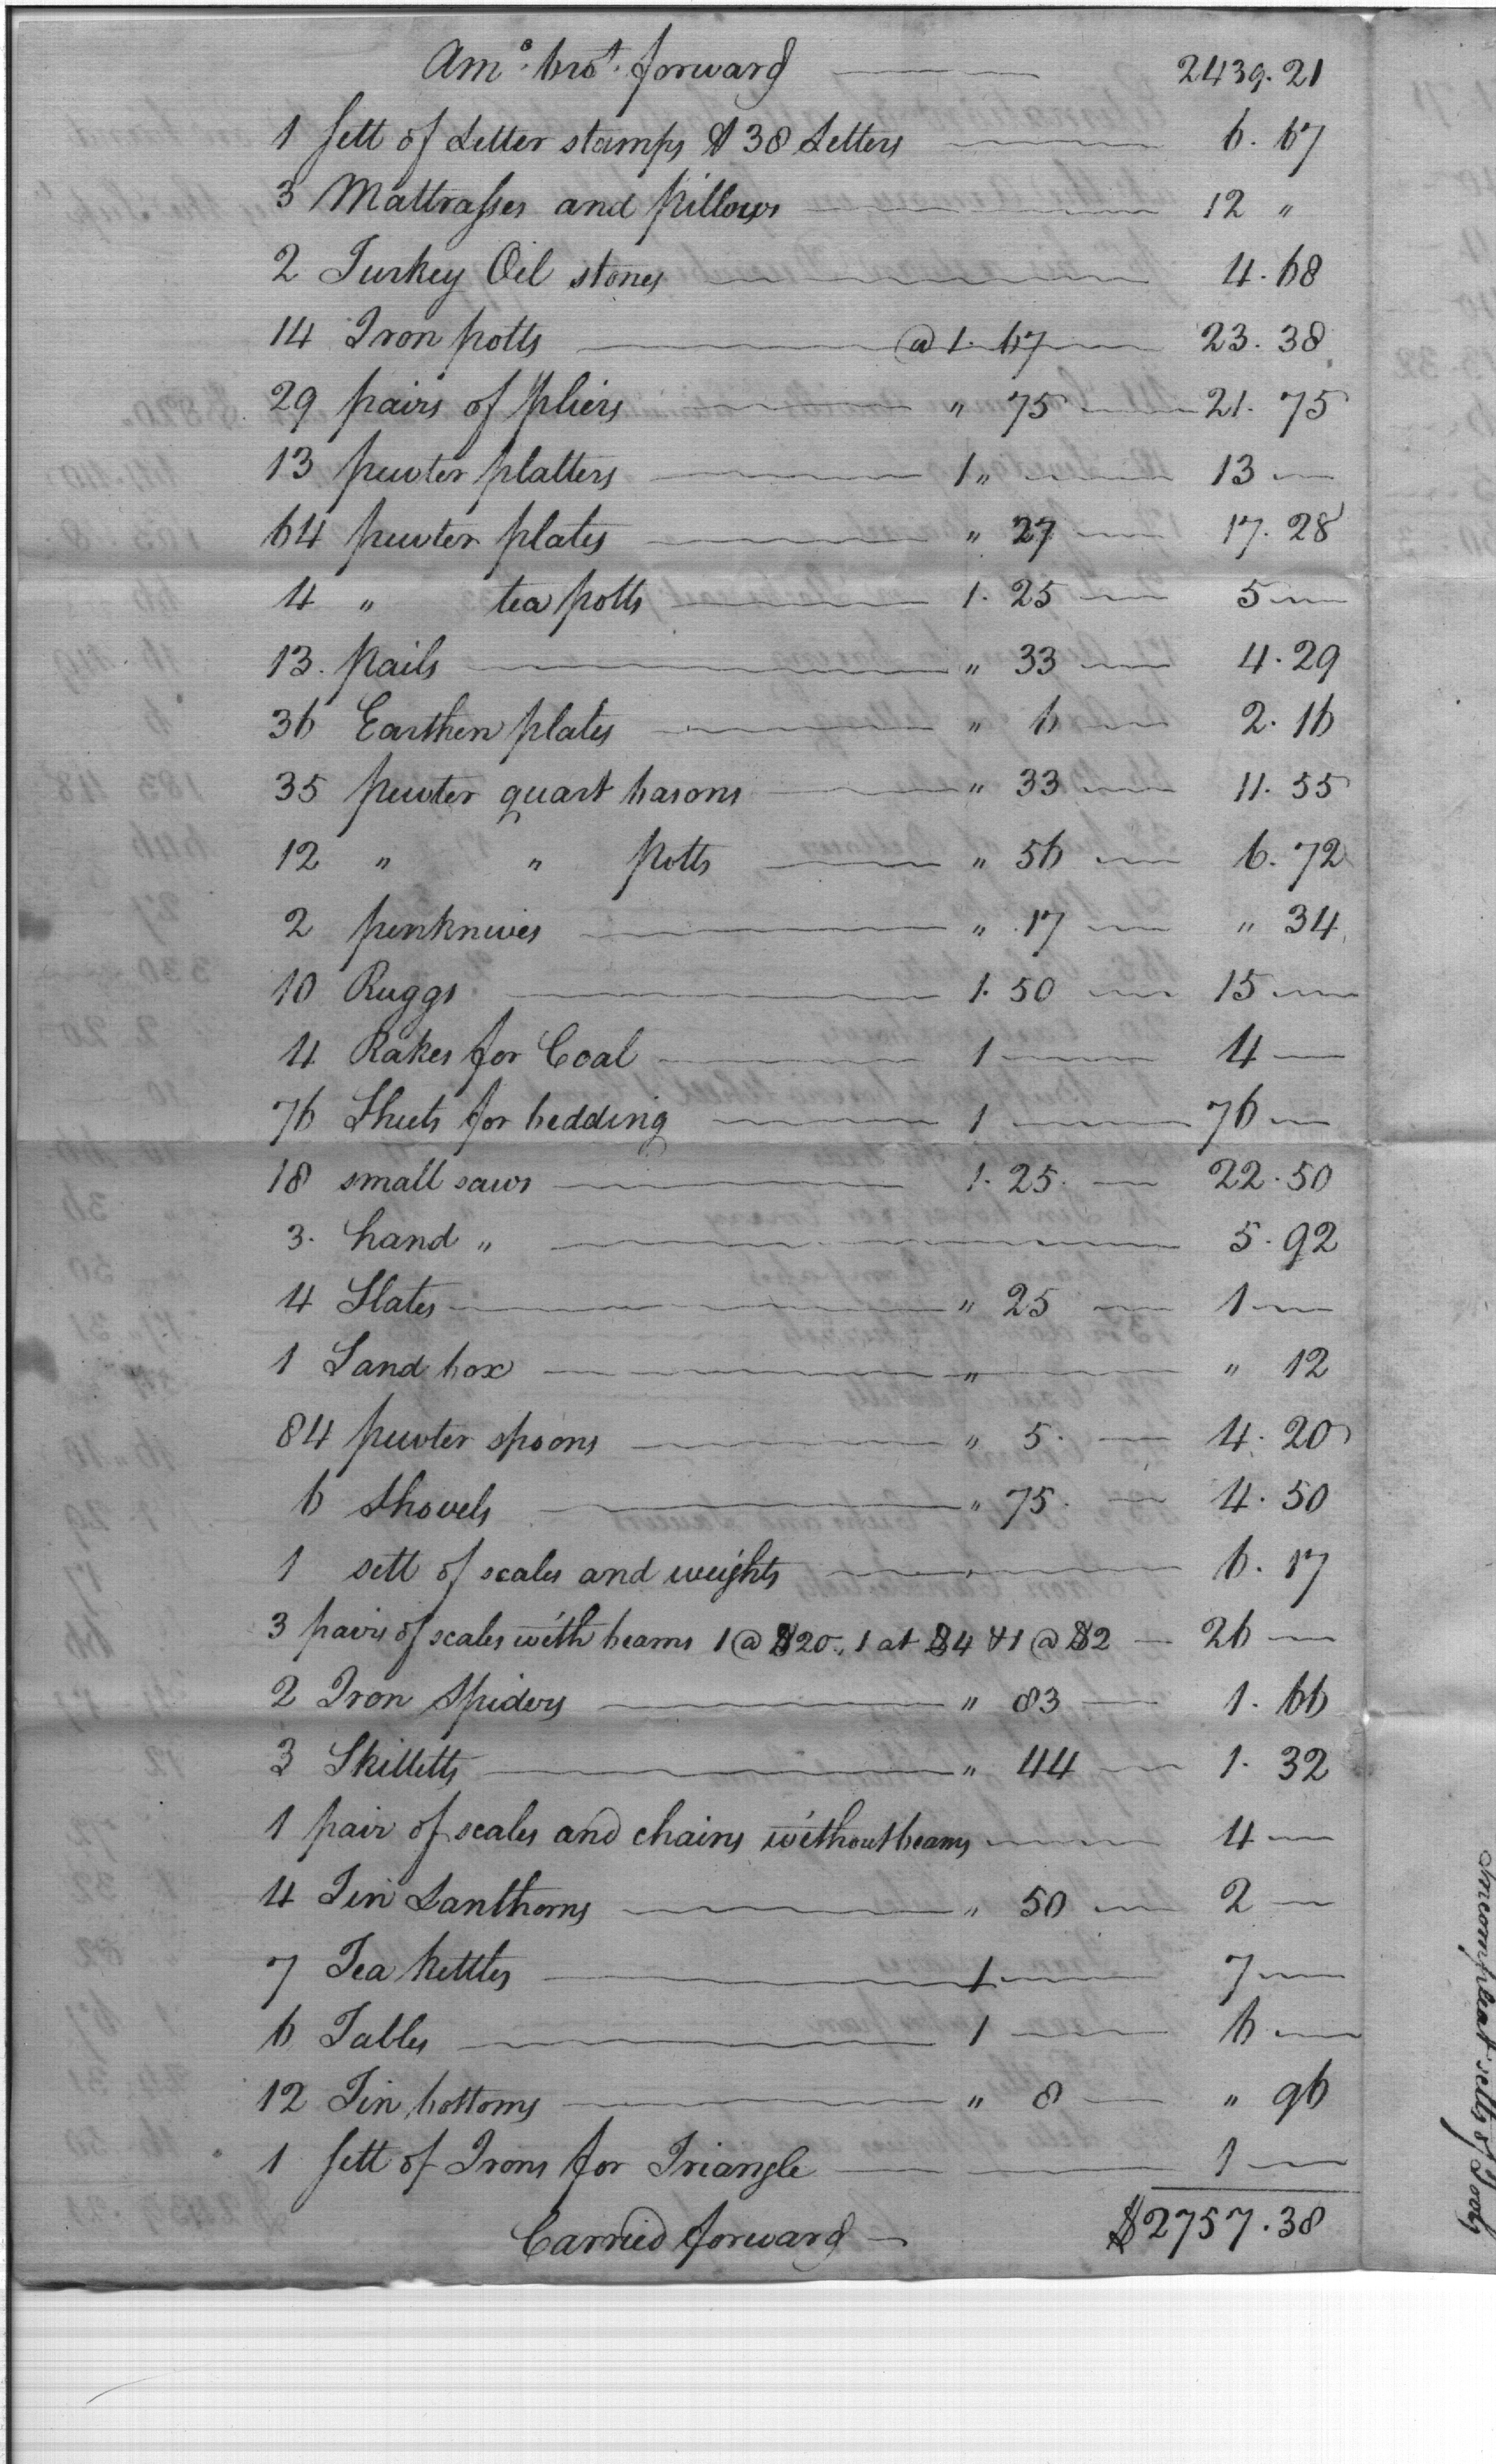 Amo. brot. forward 2439.21
1 Sett of Letter stamps & 38 Letters 6.67
3 Mattrasses and pillows 12 "
2 Turkey Oil stones 4.68
14 Iron potts @ 1.67 23.38
29 pairs of pliers " 75 21.75
13 pewter platters 1 " 13 —
64 pewter plates " 27 17.28
4 " tea potts 1.25 5 —
13. pails " 33 4.29
36 Earthen plates " 6 2.16
35 pewter quart basons " 33 11.55
12 " " potts " 56 6.72
2 penknives " 17 " 34
10 Ruggs 1.50 15 —
4 Rakes for Coal 1 4 —
76 Sheets for bedding 1 76 —
18 small saws 1.25 22.50
3. hand " 5.92
4 Slates " 25 1 —
1 Sand box " " 12
84 pewter spoons " 5. 4.20
6 Shovels " 75. 4.50
1 sett of scales and weights 6.17
3 pairs of scales with beams 1 @ $20., 1 at $4 & 1 @ $2 26 —
2 Iron Spiders " 83 1.66
3 Skilletts " 44 1.32
1 pair of scales and chains without beams 4 —
4 Tin Lanthorns " 50 2 —
7 Tea kettles 1 7 —
6 Tables 1 6 —
12 Tin bottoms " 8 " 96
1 Sett of Irons for Triangle 1 —
Carried forward — $2757.38
Incompleat setts of Tools